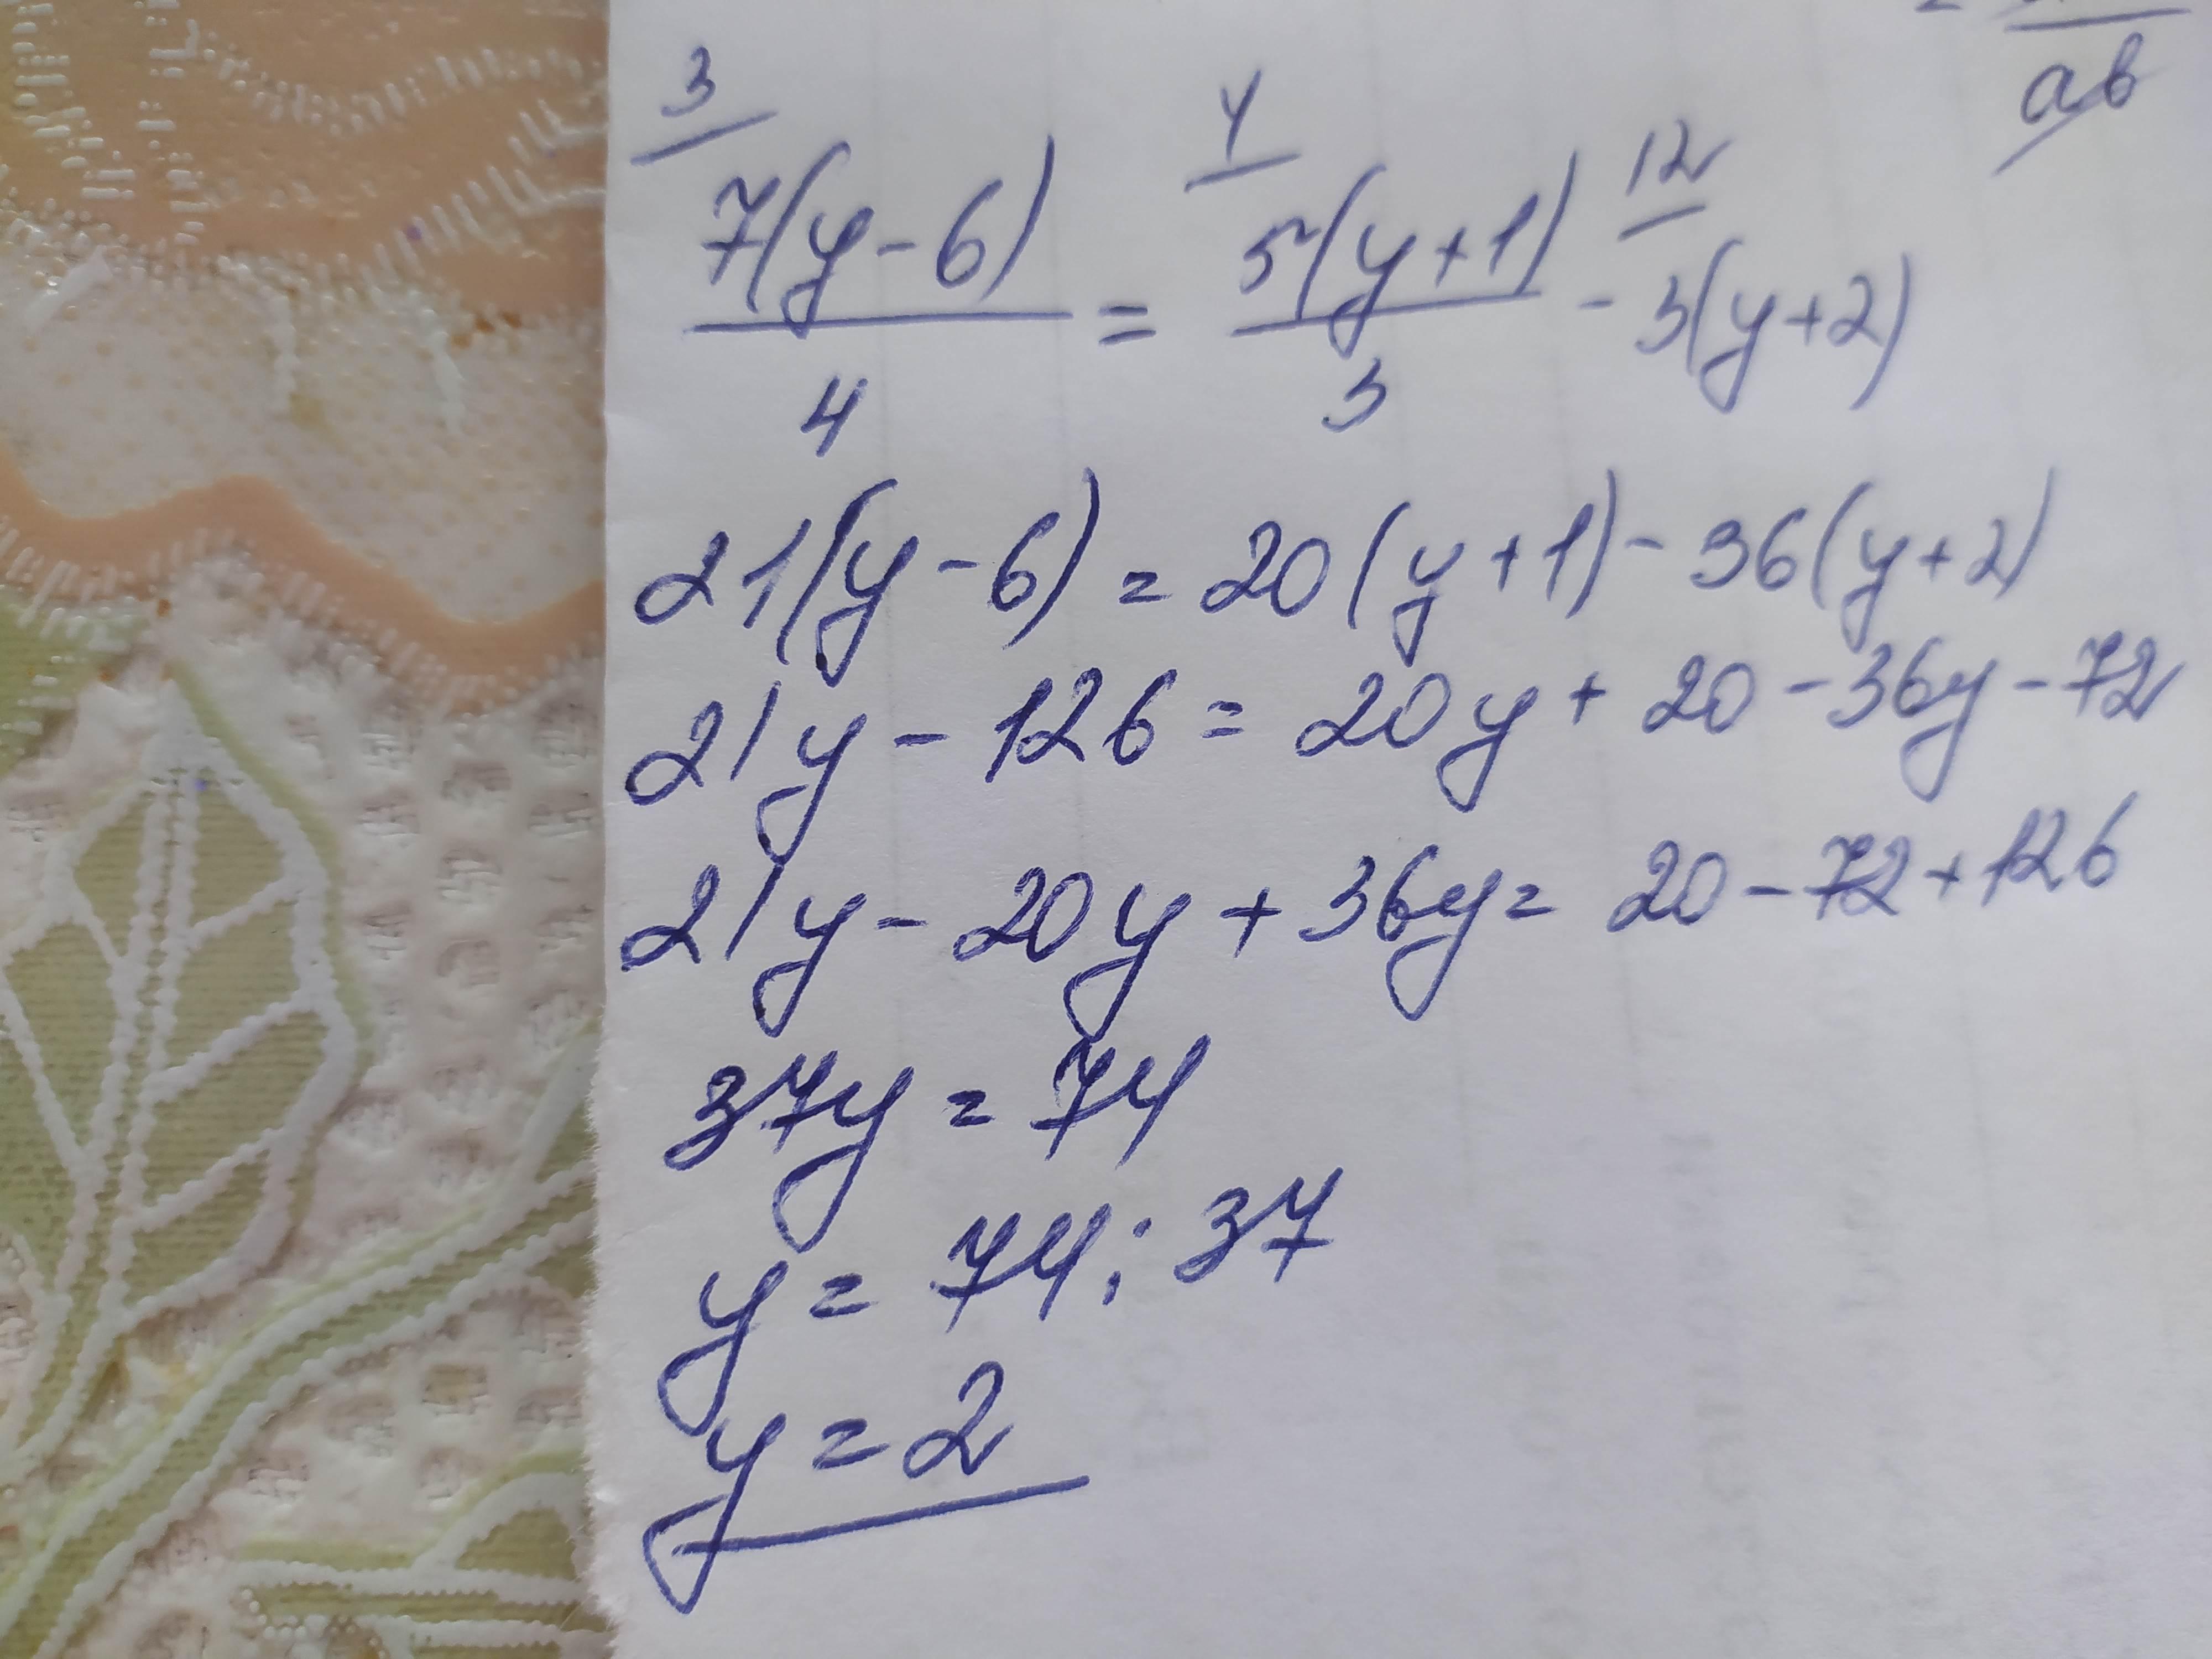 ab
3 4 12
7(y-6)/4 = 5(y+1)/3 - 3(y+2)
21(y-6) = 20(y+1) - 36(y+2)
21y - 126 = 20y + 20 - 36y - 72
21y - 20y + 36y = 20 - 72 + 126
37y = 74
y = 74 : 37
y = 2